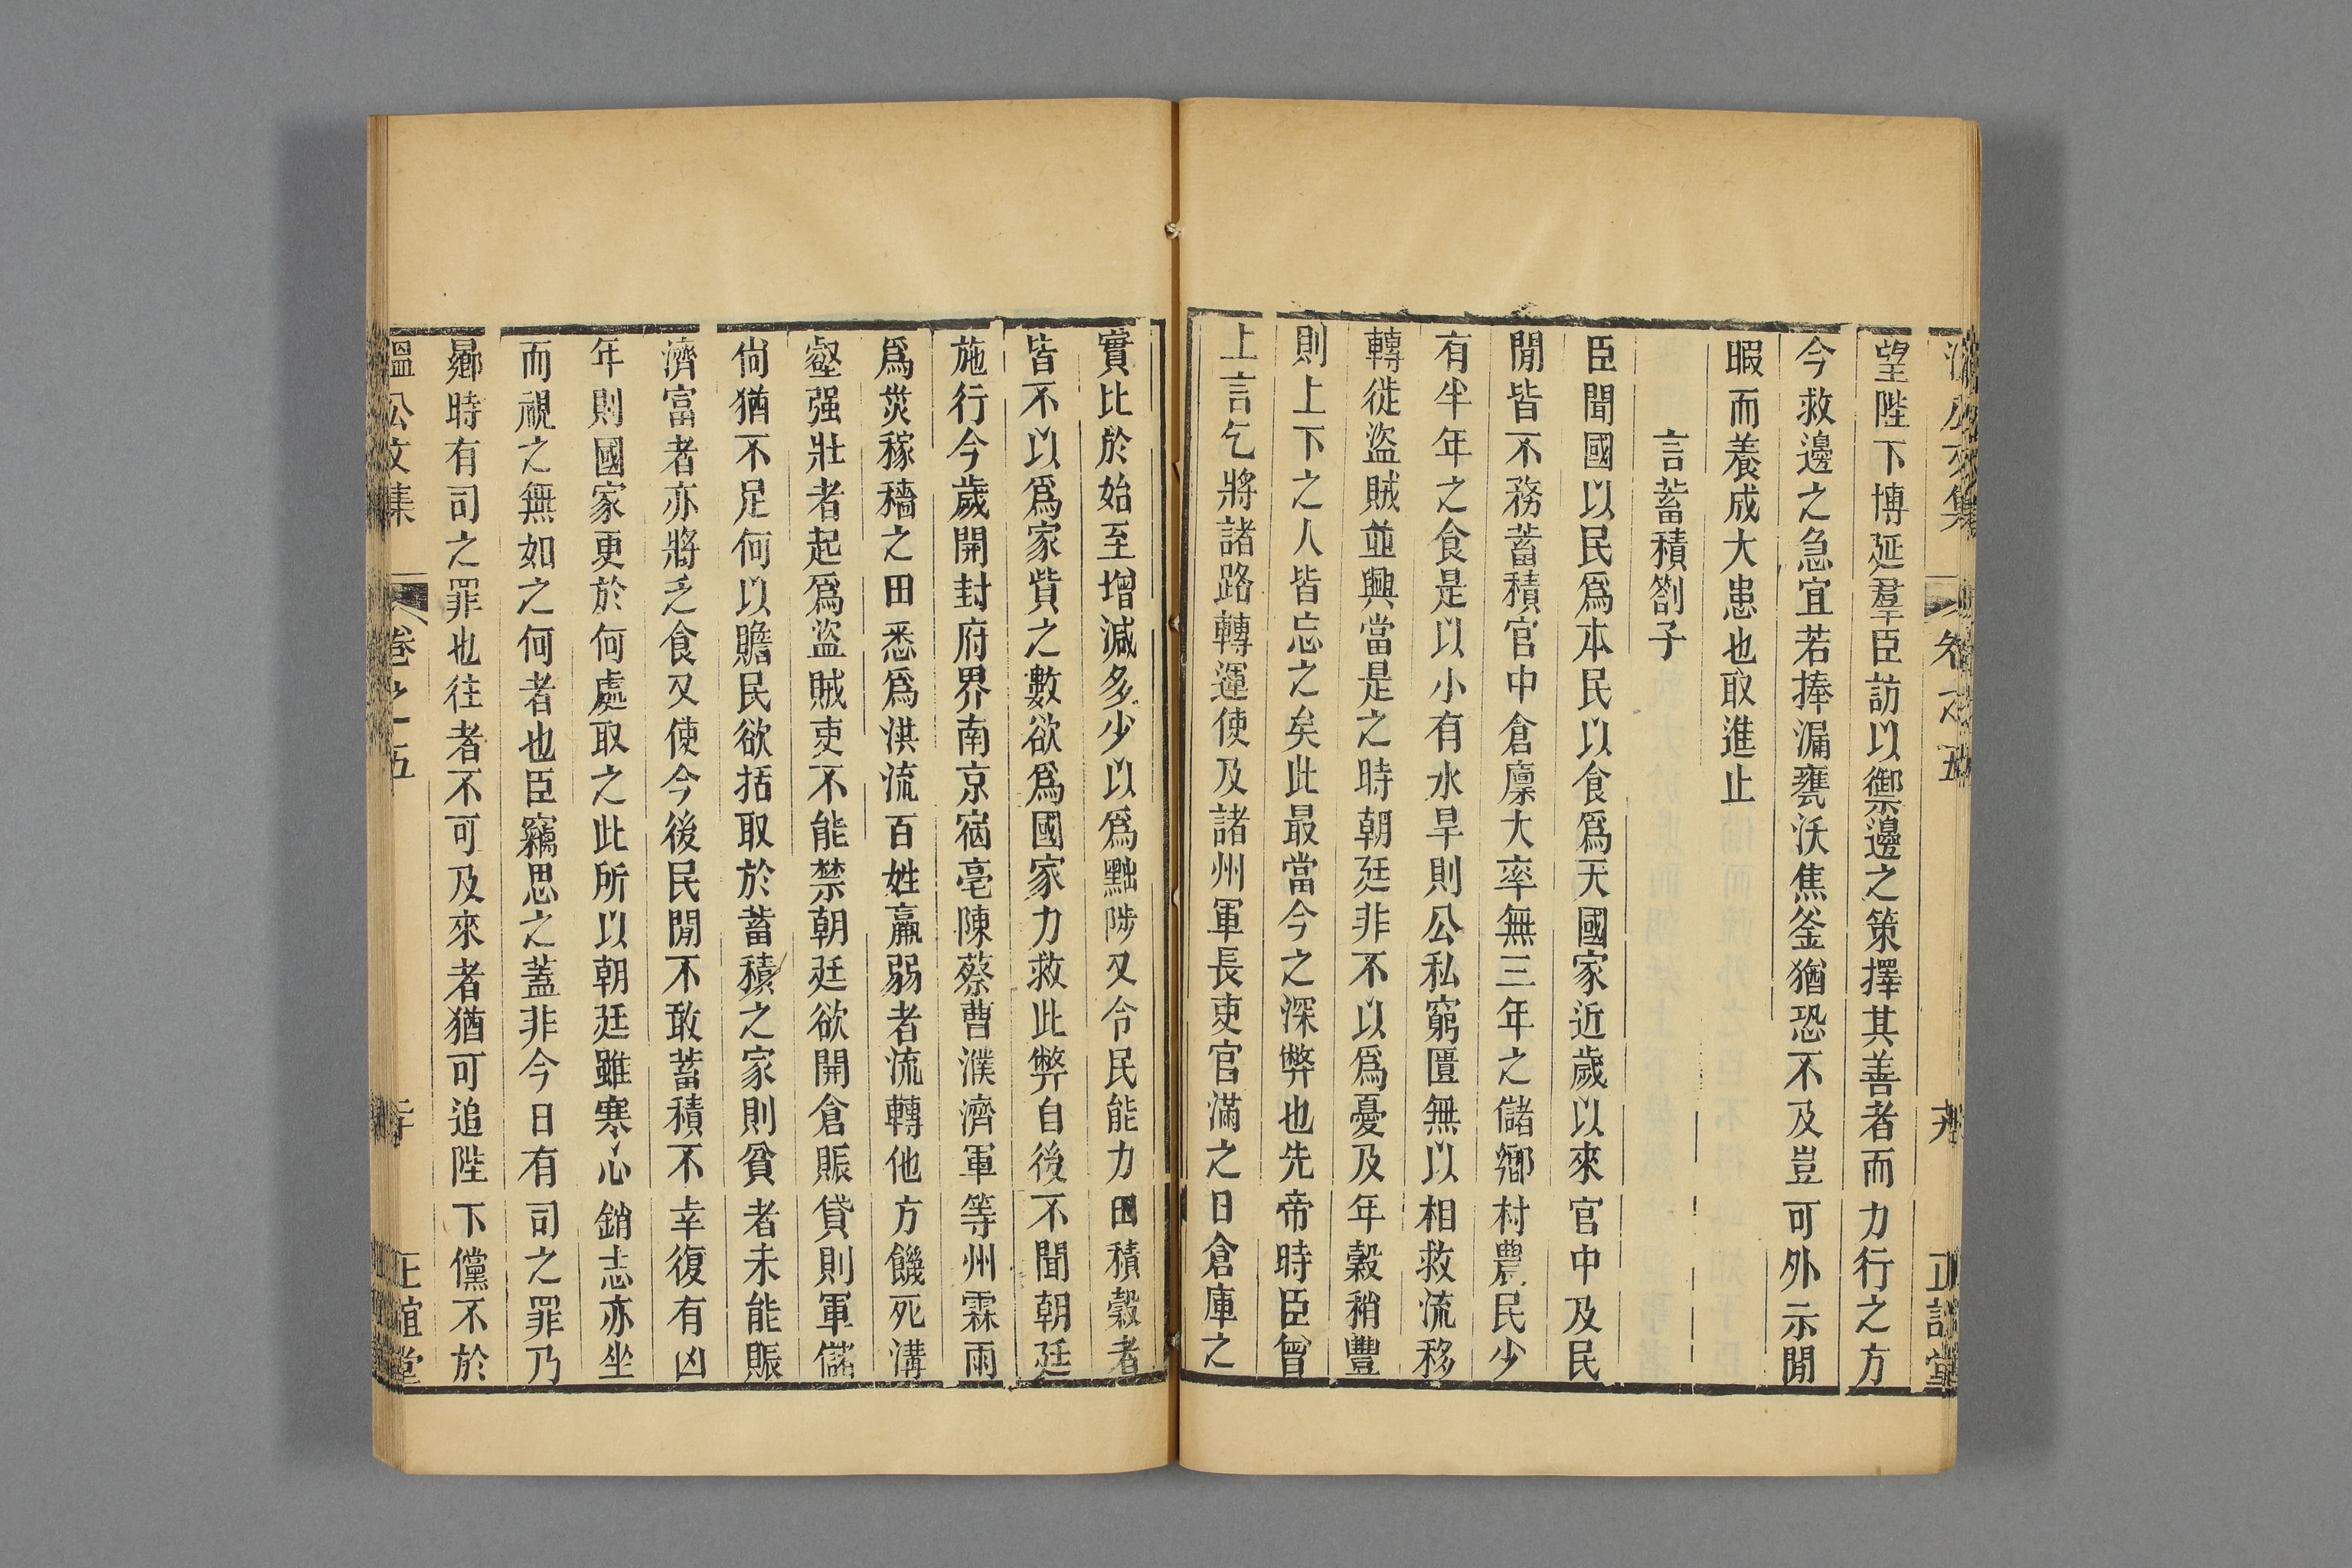 溫公文集 卷之五 正誼堂
望陛下博延羣臣訪以禦邊之策擇其善者而力行之方
今救邊之急宜若捧漏甕沃焦釜猶恐不及豈可外示閒
暇而養成大患也取進止
言蓄積劄子
臣聞國以民爲本民以食爲天國家近歲以來官中及民
閒皆不務蓄積官中倉廩大率無三年之儲鄉村農民少
有半年之食是以小有水旱則公私窮匱無以相救流移
轉徙盜賊並興當是之時朝廷非不以爲憂及年穀稍豐
則上下之人皆忘之矣此最當今之深弊也先帝時臣曾
上言乞將諸路轉運使及諸州軍長吏官滿之日倉庫之
實比於始至增減多少以爲黜陟又令民能力田積穀者
皆不以爲家貲之數欲爲國家力救此弊自後不聞朝廷
施行今歲開封府界南京宿亳陳蔡曹濮濟軍等州霖雨
爲災稼穡之田悉爲洪流百姓羸弱者流轉他方饑死溝
壑强壯者起爲盜賊吏不能禁朝廷欲開倉賑貸則軍儲
尚猶不足何以贍民欲括取於蓄積之家則貧者未能賑
濟富者亦將乏食又使今後民閒不敢蓄積不幸復有凶
年則國家更於何處取之此所以朝廷雖寒心銷志亦坐
而視之無如之何者也臣竊思之蓋非今日有司之罪乃
曏時有司之罪也往者不可及來者猶可追陛下儻不於
溫公文集 卷之五 正誼堂